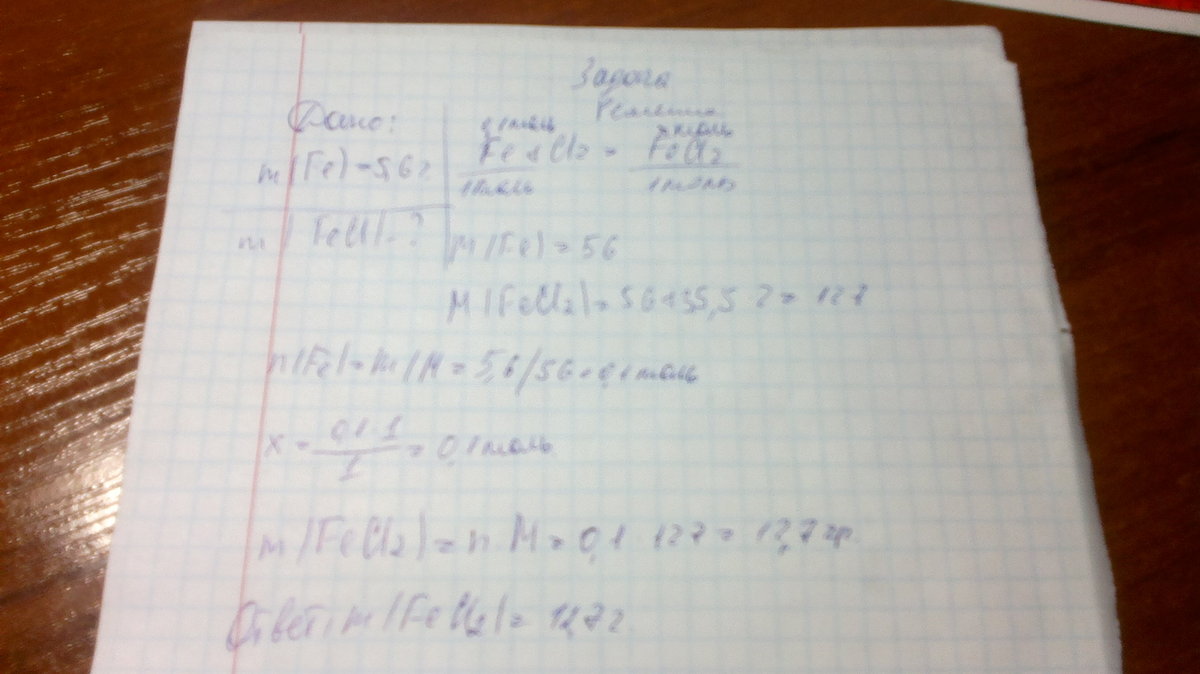 Задача
Дано:
Решение
0,1 моль
x моль
m(Fe)=5,6 г
Fe + Cl2 = FeCl2
1 моль
1 моль
m(FeCl)-?
M(Fe)=56
M(FeCl2)=56+35,5·2=127
n(Fe)=m/M=5,6/56=0,1 моль
x = 0,1·1/1 = 0,1 моль
m(FeCl2)=n·M=0,1·127=12,7 гр.
Ответ: m(FeCl2)=12,7 г